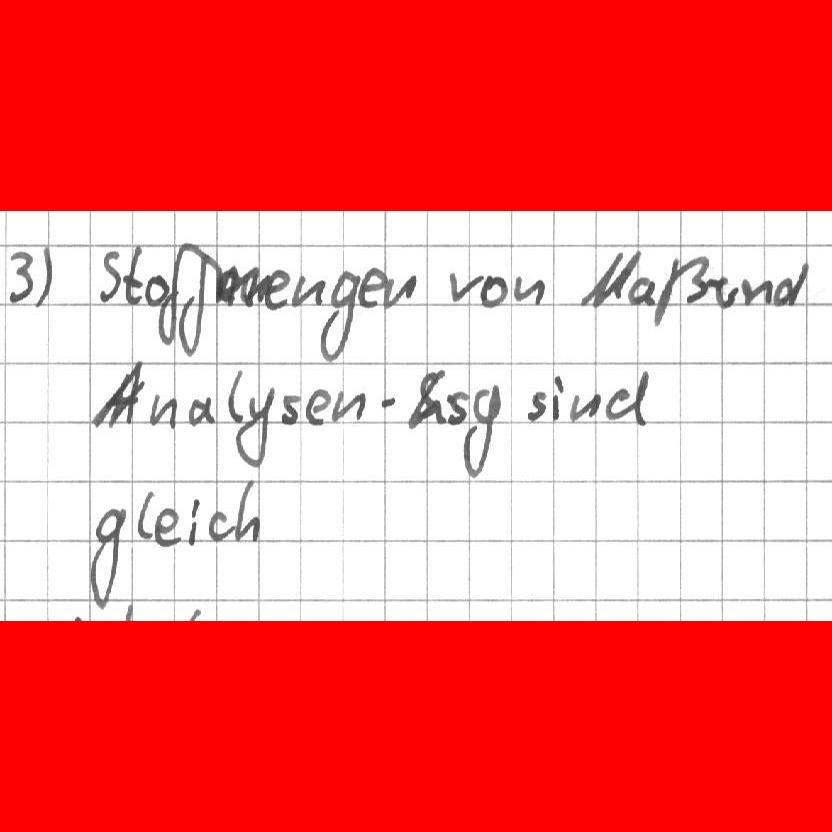 3) Stoffmengen von Maß und
Analysen-Lsg sind
gleich